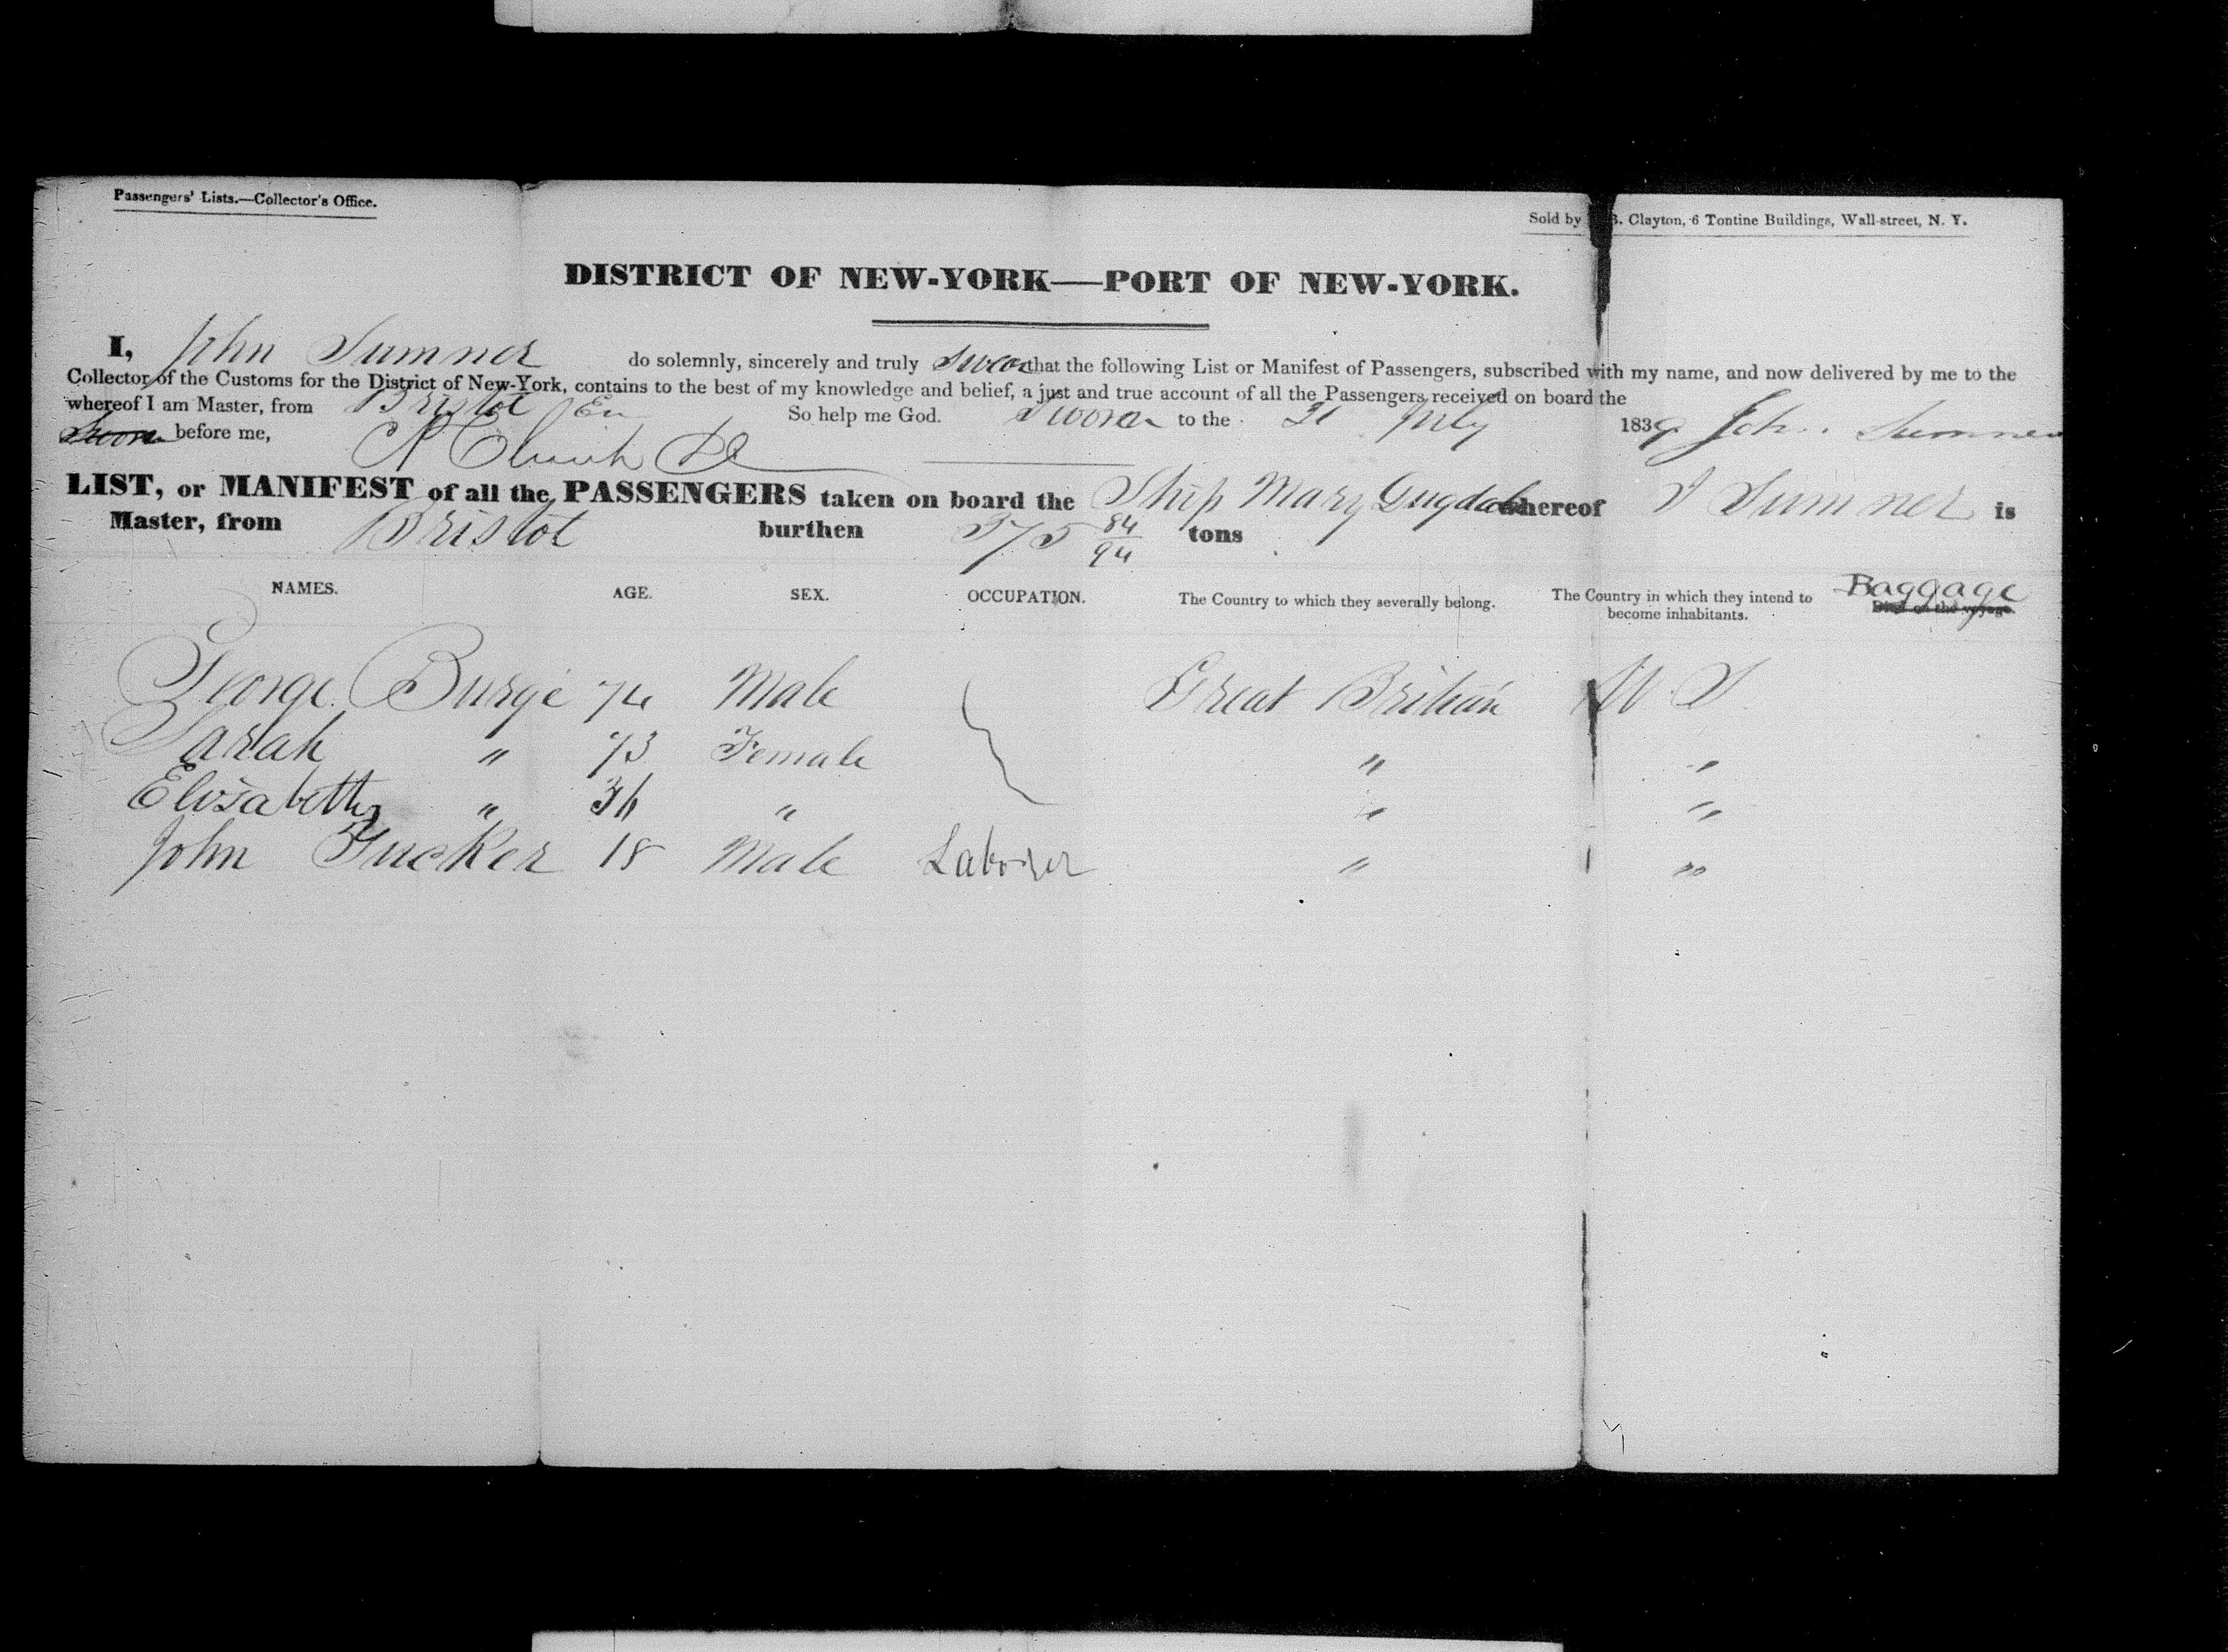 Passengers' Lists.—Collector's Office.
Sold by B. Clayton, 6 Tontine Buildings, Wall-street, N. Y.
DISTRICT OF NEW-YORK—PORT OF NEW-YORK.
I, John Sumner do solemnly, sincerely and truly Swear that the following List or Manifest of Passengers, subscribed with my name, and now delivered by me to the
Collector of the Customs for the District of New-York, contains to the best of my knowledge and belief, a just and true account of all the Passengers received on board the
whereof I am Master, from Bristol En So help me God. Sworn to the 21 July 1839 John Sumner
Sworn before me,
LIST, or MANIFEST of all the PASSENGERS taken on board the Ship Mary Dugdale whereof J Sumner is
Master, from Bristol burthen 375 84/94 tons
NAMES. AGE. SEX. OCCUPATION. The Country to which they severally belong. The Country in which they intend to become inhabitants. Baggage Died on the voyage
George Burge 74 Male Great Britian U S
Sarah " 73 Female " "
Elisabeth " 36 " " "
John Tucker 18 Male Laborer " "